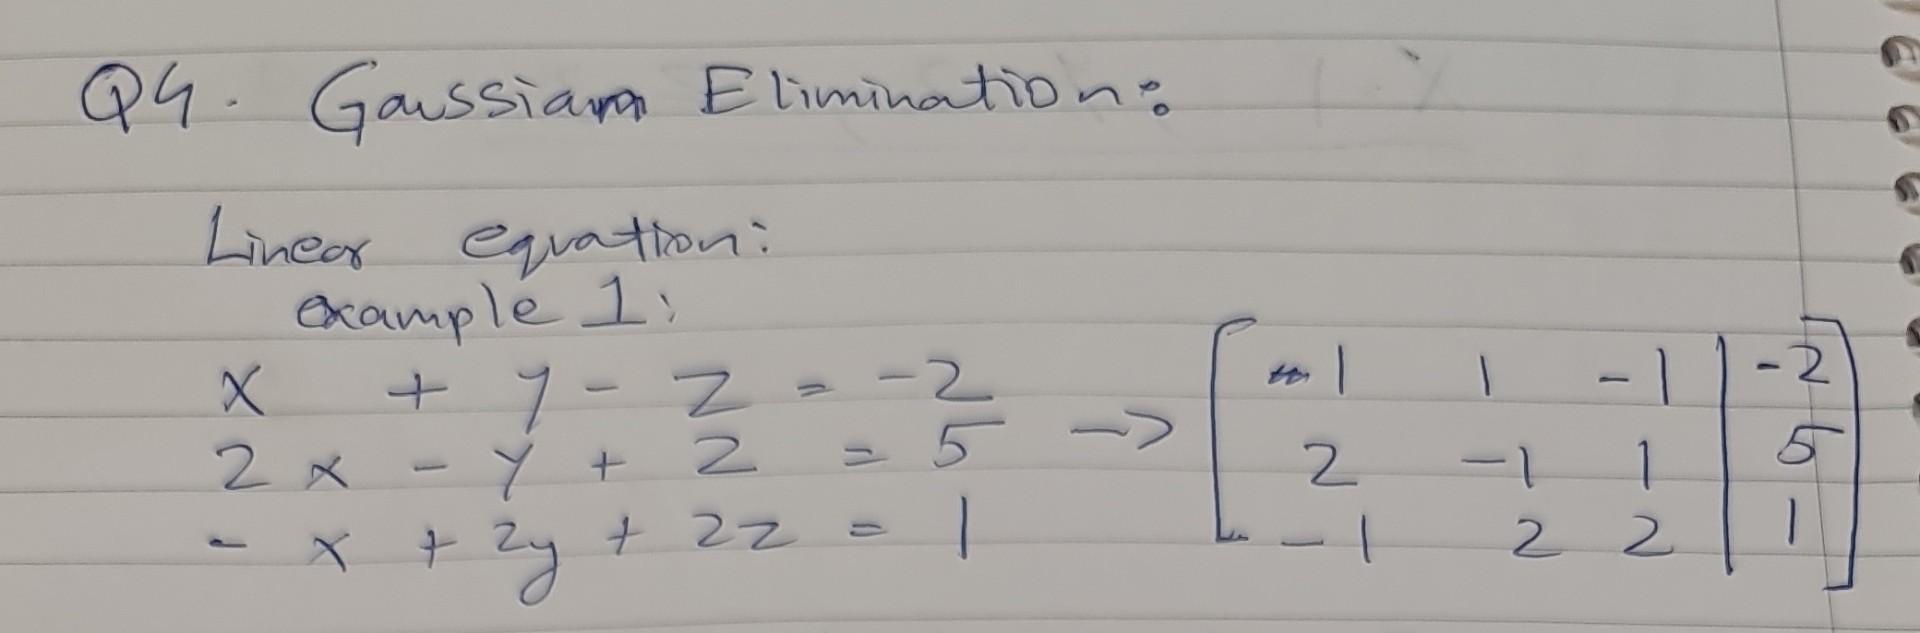 Q4. Gaussian Elimination:
Linear equation:
example 1:
x + y - z = -2 -> [ 1 1 -1 | -2 ]
2x - y + z = 5 [ 2 -1 1 | 5 ]
- x + 2y + 2z = 1 [ -1 2 2 | 1 ]